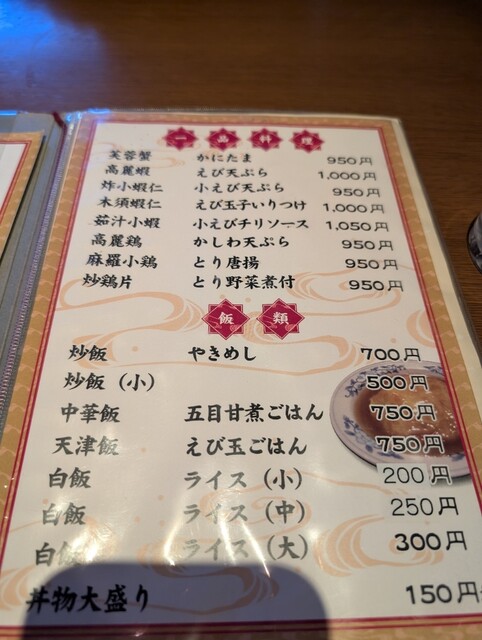 一品料理
芙蓉蟹 かにたま 950円
高麗蝦 えび天ぷら 1,000円
炸小蝦仁 小えび天ぷら 950円
木須蝦仁 えび玉子いりつけ 1,000円
茄汁小蝦 小えびチリソース 1,050円
高麗鶏 かしわ天ぷら 950円
麻羅小鶏 とり唐揚 950円
炒鶏片 とり野菜煮付 950円
飯類
炒飯 やきめし 700円
炒飯(小) 500円
中華飯 五目甘煮ごはん 750円
天津飯 えび玉ごはん 750円
白飯 ライス(小) 200円
白飯 ライス(中) 250円
白飯 ライス(大) 300円
丼物大盛り 150円